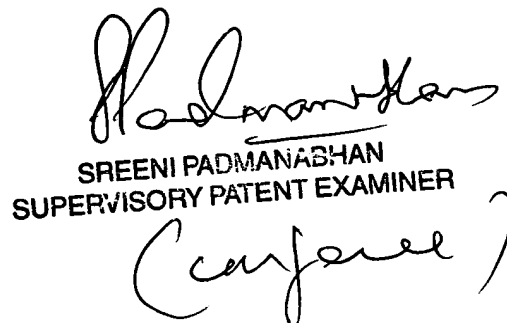 SPadmanabhan
SREENI PADMANABHAN
SUPERVISORY PATENT EXAMINER
(conferee)